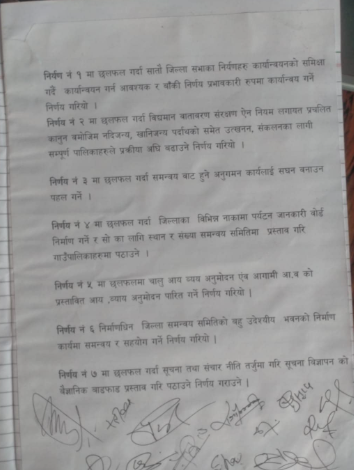 निर्यण नं १ मा छलफल गर्दा सातौं जिल्ला सभाका निर्णयहरु कार्यान्वयनको समिक्षा
गर्दै कार्यान्वयन गर्न आवश्यक र बाँकी निर्णय प्रभावकारी रुपमा कार्यान्वय गर्ने
निर्णय गरियो ।
निर्णय नं २ मा छलफल गर्दा विद्यमान वातावरण संरक्षण ऐन नियम लगायत प्रचलित
कानुन बमोजिम नदिजन्य, खानिजन्य पर्दाथको समेत उत्खनन, संकलनका लागी
सम्पूर्ण पालिकाहरुले प्रक्रीया अघि बढाउने निर्णय गरियो ।
निर्णय नं ३ मा छलफल गर्दा समन्वय बाट हुने अनुगमन कार्यलाई सघन बनाउन
पहल गर्ने ।
निर्णय नं ४ मा छलफल गर्दा जिल्लाका विभिन्न नाकामा पर्यटन जानकारी बोर्ड
निर्माण गर्ने र सो का लागि स्थान र संख्या समन्वय समितिमा प्रस्ताव गरि
गाउँपालिकाहरुमा पठाउने ।
निर्णय नं ५ मा छलफलमा चालु आय व्यय अनुमोदन एव आगामी आ.व को
प्रस्तावित आय ,व्याय अनुमोदन पारित गर्ने निर्णय गरियो ।
निर्णय नं ६ निर्माणधिन जिल्ला समन्वय समितिको बहु उदेश्यीय भवनको निर्माण
कार्यमा समन्वय र सहयोग गर्ने निर्णय गरियो ।
निर्णय नं ७ मा छलफल गर्दा सूचना तथा संचार नीति तर्जुमा गरि सूचना विज्ञापन को
बैज्ञानिक बाडफाड प्रस्ताव गरि पठाउने निर्णय गराउने ।